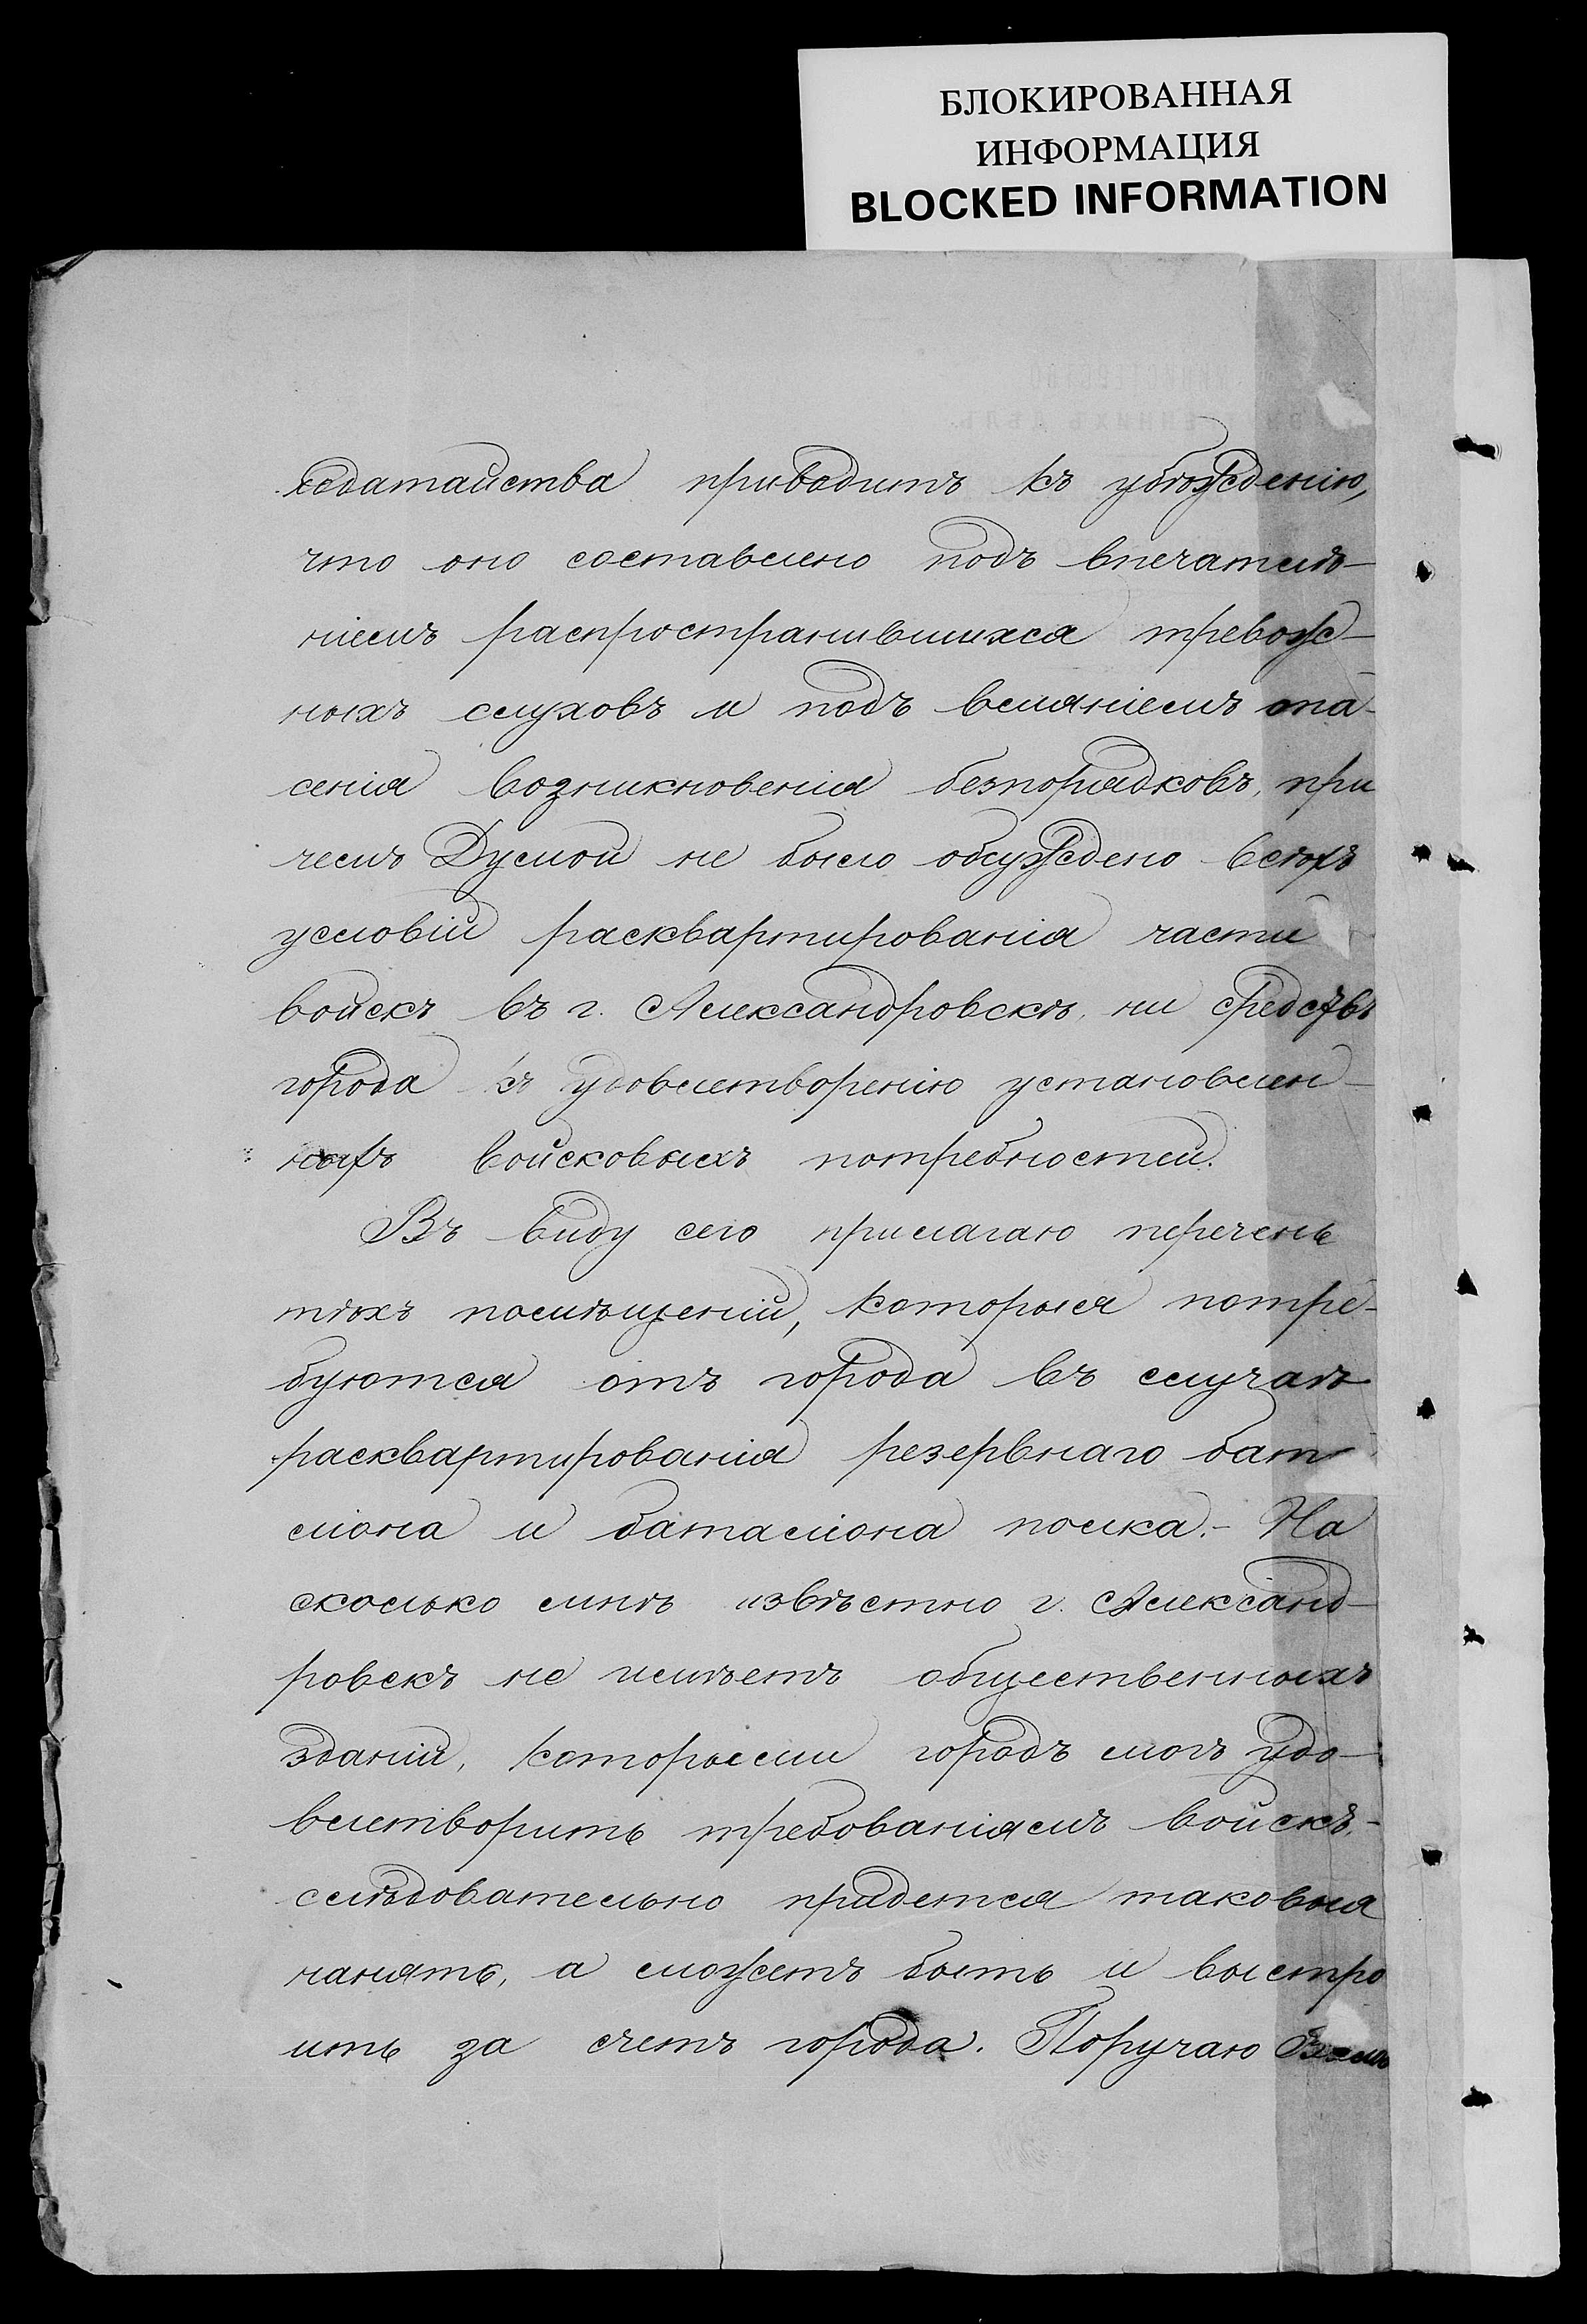 БЛОКИРОВАННАЯ
ИНФОРМАЦИЯ
BLOCKED INFORMATION
ходатайства приводитъ къ убѣжденію,
что оно составлено подъ впечатлѣ-
ніемъ распространившихся тревож-
ныхъ слуховъ и подъ вліяніемъ опа-
сенія возникновенія безпорядковъ, при
чемъ Думой не было обсуждено всѣхъ
условій расквартированія части
войскъ въ г. Александровскѣ, ни средствъ
города къ удовлетворенію установлен-
ныхъ войсковыхъ потребностей.
Въ виду сего прилагаю перечень
тѣхъ помѣщеній, которыя потре-
буются отъ города въ случаѣ
расквартированія резервнаго бата
ліона и баталіона полка.- На
сколько мнѣ извѣстно г. Александ-
ровскъ не имѣетъ общественныхъ
зданій, которыми городъ могъ удо-
влетворить требованіямъ войскъ,-
слѣдовательно придется таковыя
нанять, а можетъ быть и выстро
ить за счетъ города. Поручаю Вамъ